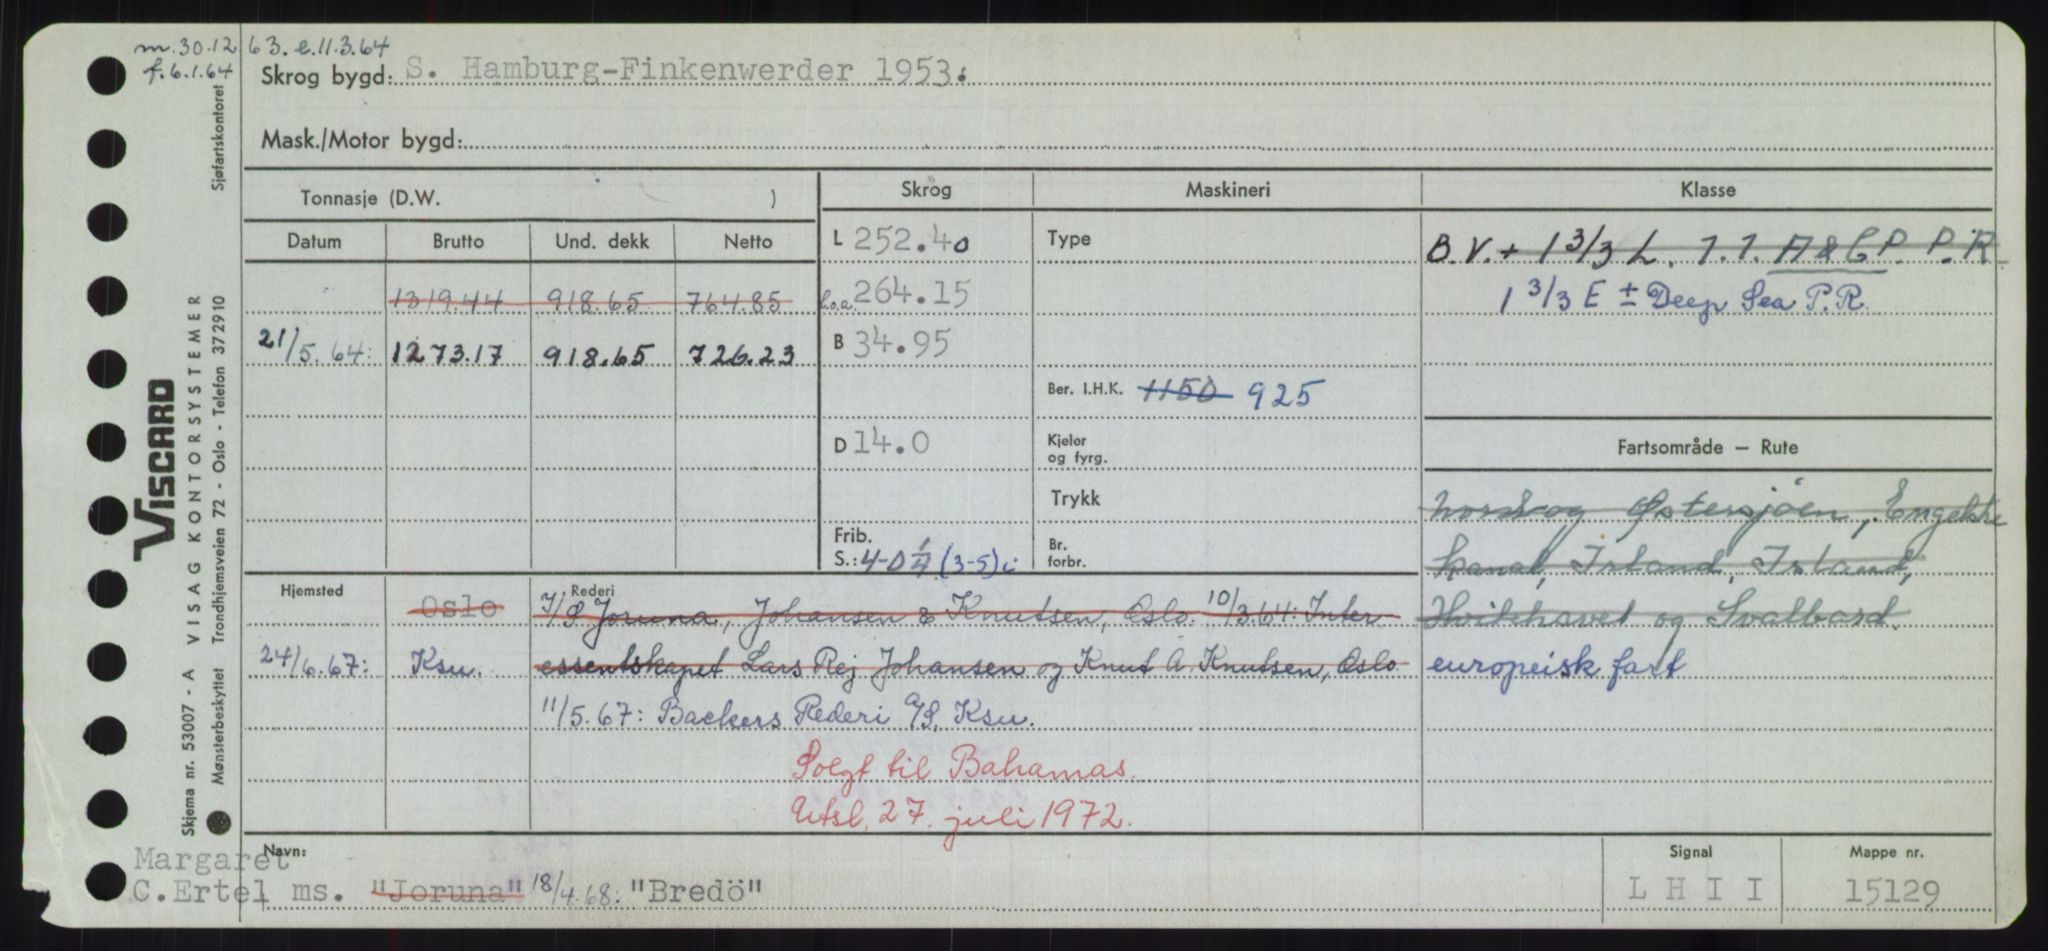 m.30.12 63. e.11.3.64
f.6.1.64
Skrog bygd: S. Hamburg-Finkenwerder 1953.
Mask./Motor bygd:
Tonnasje (D.W. )
Skrog
Maskineri
Klasse
Datum Brutto Und. dekk Netto
1319.44 918.65 764.85
21/5.64: 1273.17 918.65 726.23
L 252.40
l.o.a. 264.15
B 34.95
D 14.0
Frib.
S.: 4-0 1/4 (3-5)i
Type
Ber. I.H.K. 1150 925
Kjeler
og fyrg.
Trykk
Br.
forbr.
B.V. + 1 3/3 L. 1.1. A & C P. P.R.
1 3/3 E ± Deep Sea P.R.
Fartsområde – Rute
Nord og Østersjøen, Engelske
kanal, Irland, Island,
Hvitehavet og Svalbard.
europeisk fart
Hjemsted
Oslo
24/6.67: Ksu.
Rederi
I/S Joruna, Johansen & Knutsen, Oslo. 10/3.64: Inter
essentskapet Lars Rej Johansen og Knut A. Knutsen, Oslo
11/5.67: Backers Rederi A/S, Ksu.
Solgt til Bahamas.
Utsl. 27. juli 1972.
Navn:
Margaret
C.Ertel ms. "Joruna" 18/4.68: "Bredö"
Signal
L H I I
Mappe nr.
15129
VISCARD
VISAG KONTORSYSTEMER
Skjema nr. 53007 - A
Mønsterbeskyttet Trondhjemsveien 72 - Oslo - Telefon 372910
Sjøfartskontoret